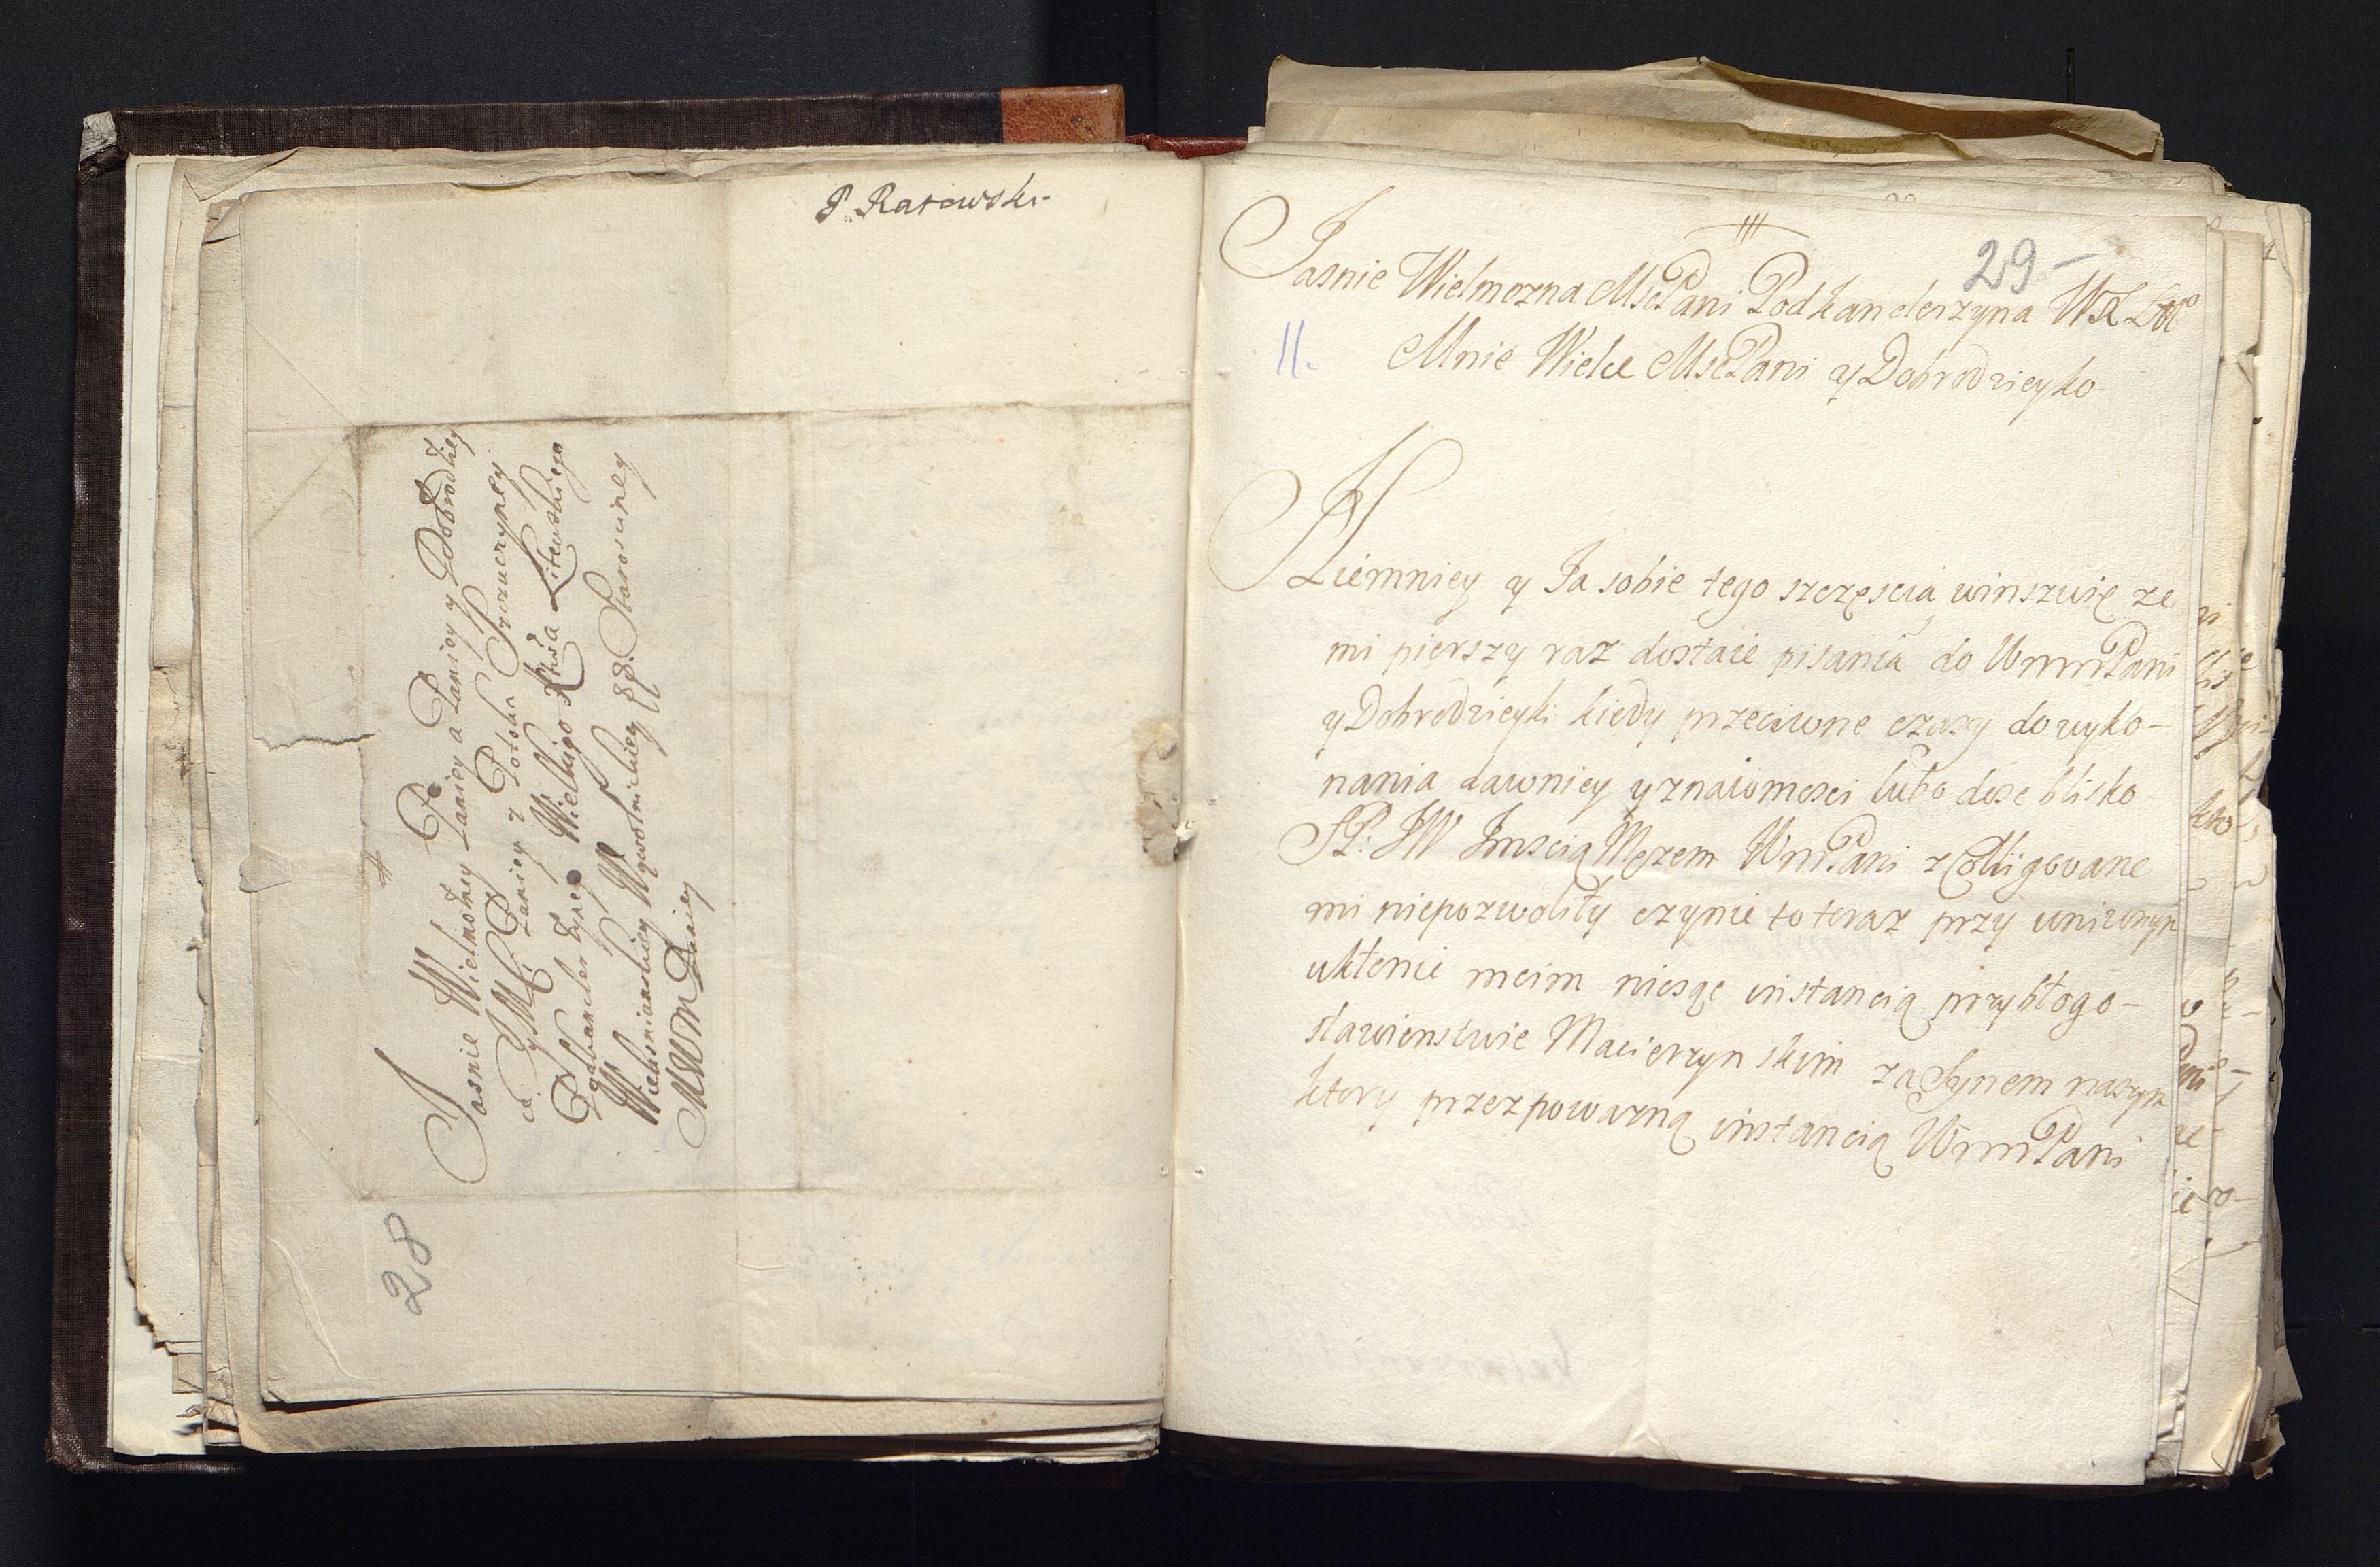 P. Ratowski
#
Jasnie Wielmożney Paniey a Paniey y Dobrodziey
ce JMCi Paniey z Potoka Szczuczyney
Podkanclerzyney Wielkigo Xnstwa Litewskiego
Wielsniawskiey Wąwolnickiey &&. Starosciney
MWM Paniey
28
29
Jasnie Wielmozna MsciPani Podkanclerzyna WX Litto
II. Mnie Wielce MsciPani y Dobrodzieyko
y Ja sobie tego szczęscia winszuię ze
mi pierszy raz dostaie pisania do WmmPani
y Dobrodzieyki kiedy przeciwne czasy do wyko-
nania dawniey y znaiomosci lubo dosc blisko
SP: JW Jmscią Męzem WmPani zColligowane
mi niepozwoliły czynie to teraz przy uniżonym
ukłonie moim niosąc instancią przy błogo-
sławienstwie Macierzynskim za Synem naszym
ktory przez powazną instancią WmmPani